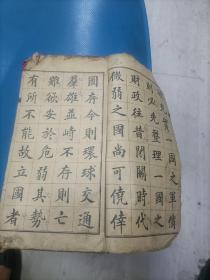 一國之軍情
必先整理一國之
財政往昔閉關時代
微弱之國尚可僥倖
圖存今則環球交通
羣雄並峙不存則亡
雖欲安於危弱其勢
有所不能故立國者